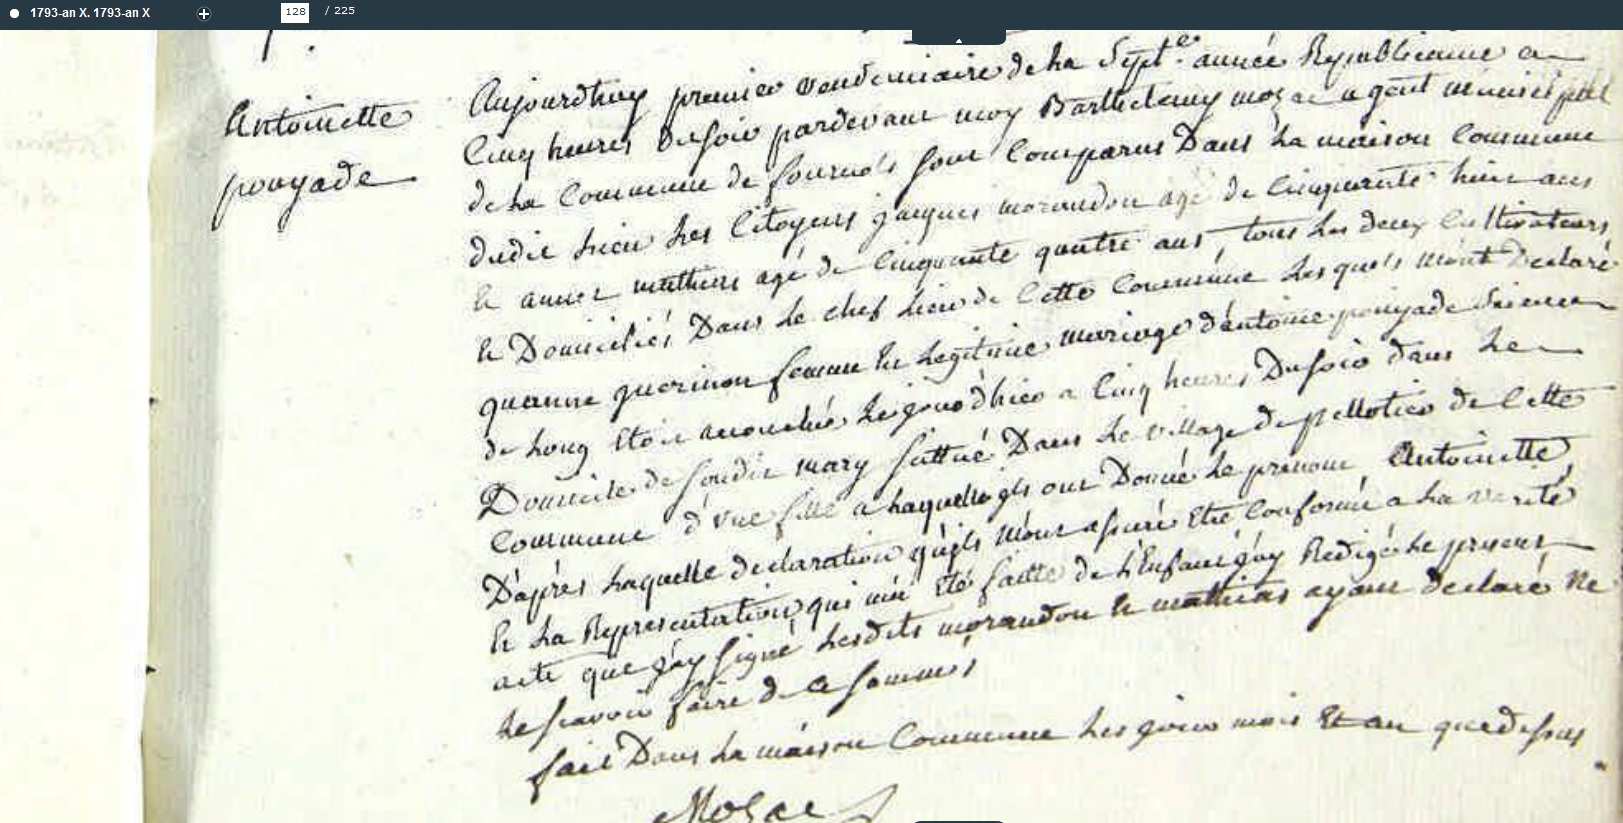 1793-an X. 1793-an X
128 / 225
Antoinette
pouyade
Aujourdhuy premier vendemiaire de la Septe. année Republicaine a
Cinq heures du soir pardevant moy Barthelemy mozac agent municipal
de la Commune de fournols sont Comparus Dans La maison Commune
dudit Lieu Les Citoyens jacques morandon agé de Cinquante huit ans
et annet mathias agé de Cinquante quatre ans, tous Les deux Cultivateurs
et Domiciliés Dans Le chef Lieu de Cette Commune Les quels m'ont Declaré
que anne guerinon femme En Legitime mariage d'antoine pouyade
de Long Etoit accouchée Le jour d'hier a Cinq heures Du soir dans Le
Domicile de sondit mary situé Dans Le village de pellotier de Cette
Commune d'une fille a Laquelle ils ont Donné Le prenom Antoinette
D'après Laquelle declaration qu'ils m'ont assuré Etre Conforme a La verité
et La Representation qui m'a Eté faitte de L'Enfant j'ay Redigé Le present
acte que j'ay signé Lesdits morandon et mathias ayant declaré ne
Le savoir faire de ce sommés
fait Dans La maison Commune Les jour mois Et an que dessus
Mozac